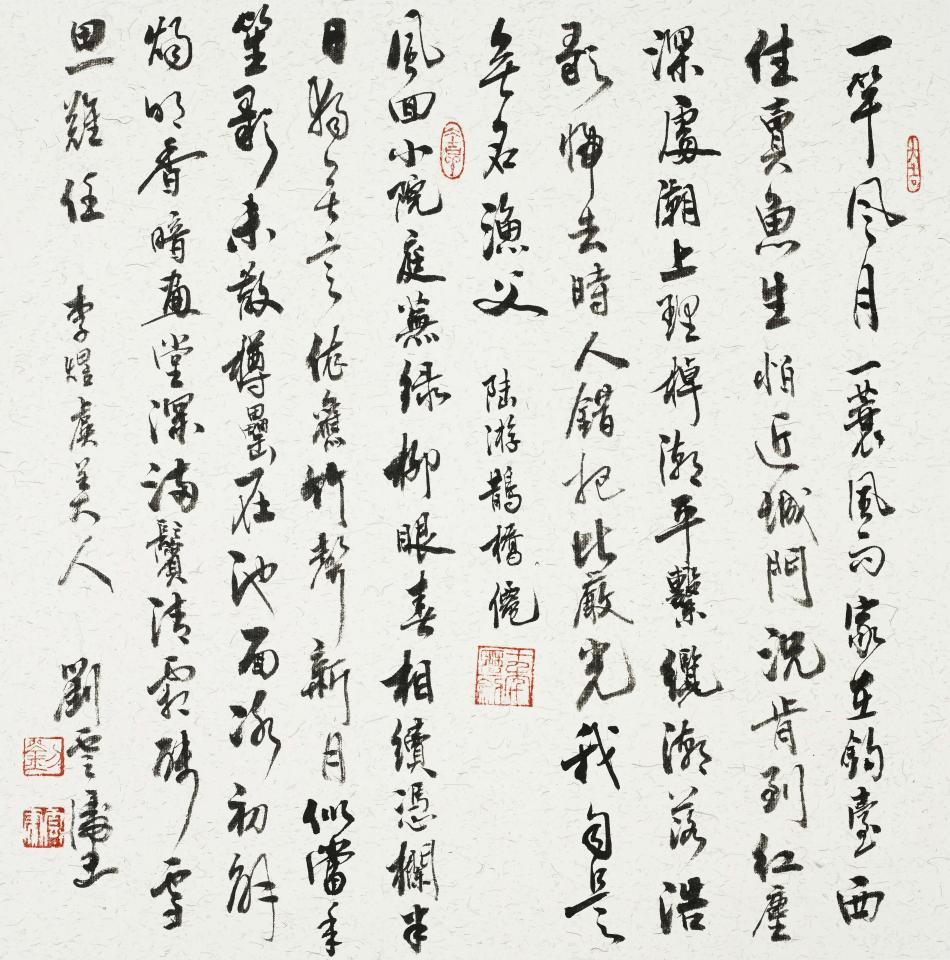 一竿风月一蓑風雨家在釣臺西
住賣魚生怕近城門況肯到紅塵
深處潮上理棹潮平繫纜潮落浩
歌歸去時人錯把比嚴光我自是
無名漁父 陸游鵲橋僊
風回小院庭蕪緑柳眼春相續憑欄半
日獨無言依舊竹聲新月似當年
笙歌未散樽罍在池面冰初解
燭明香暗畫堂深滿鬢清霜殘雪
思難任 李煜虞美人 劉雲
大吉